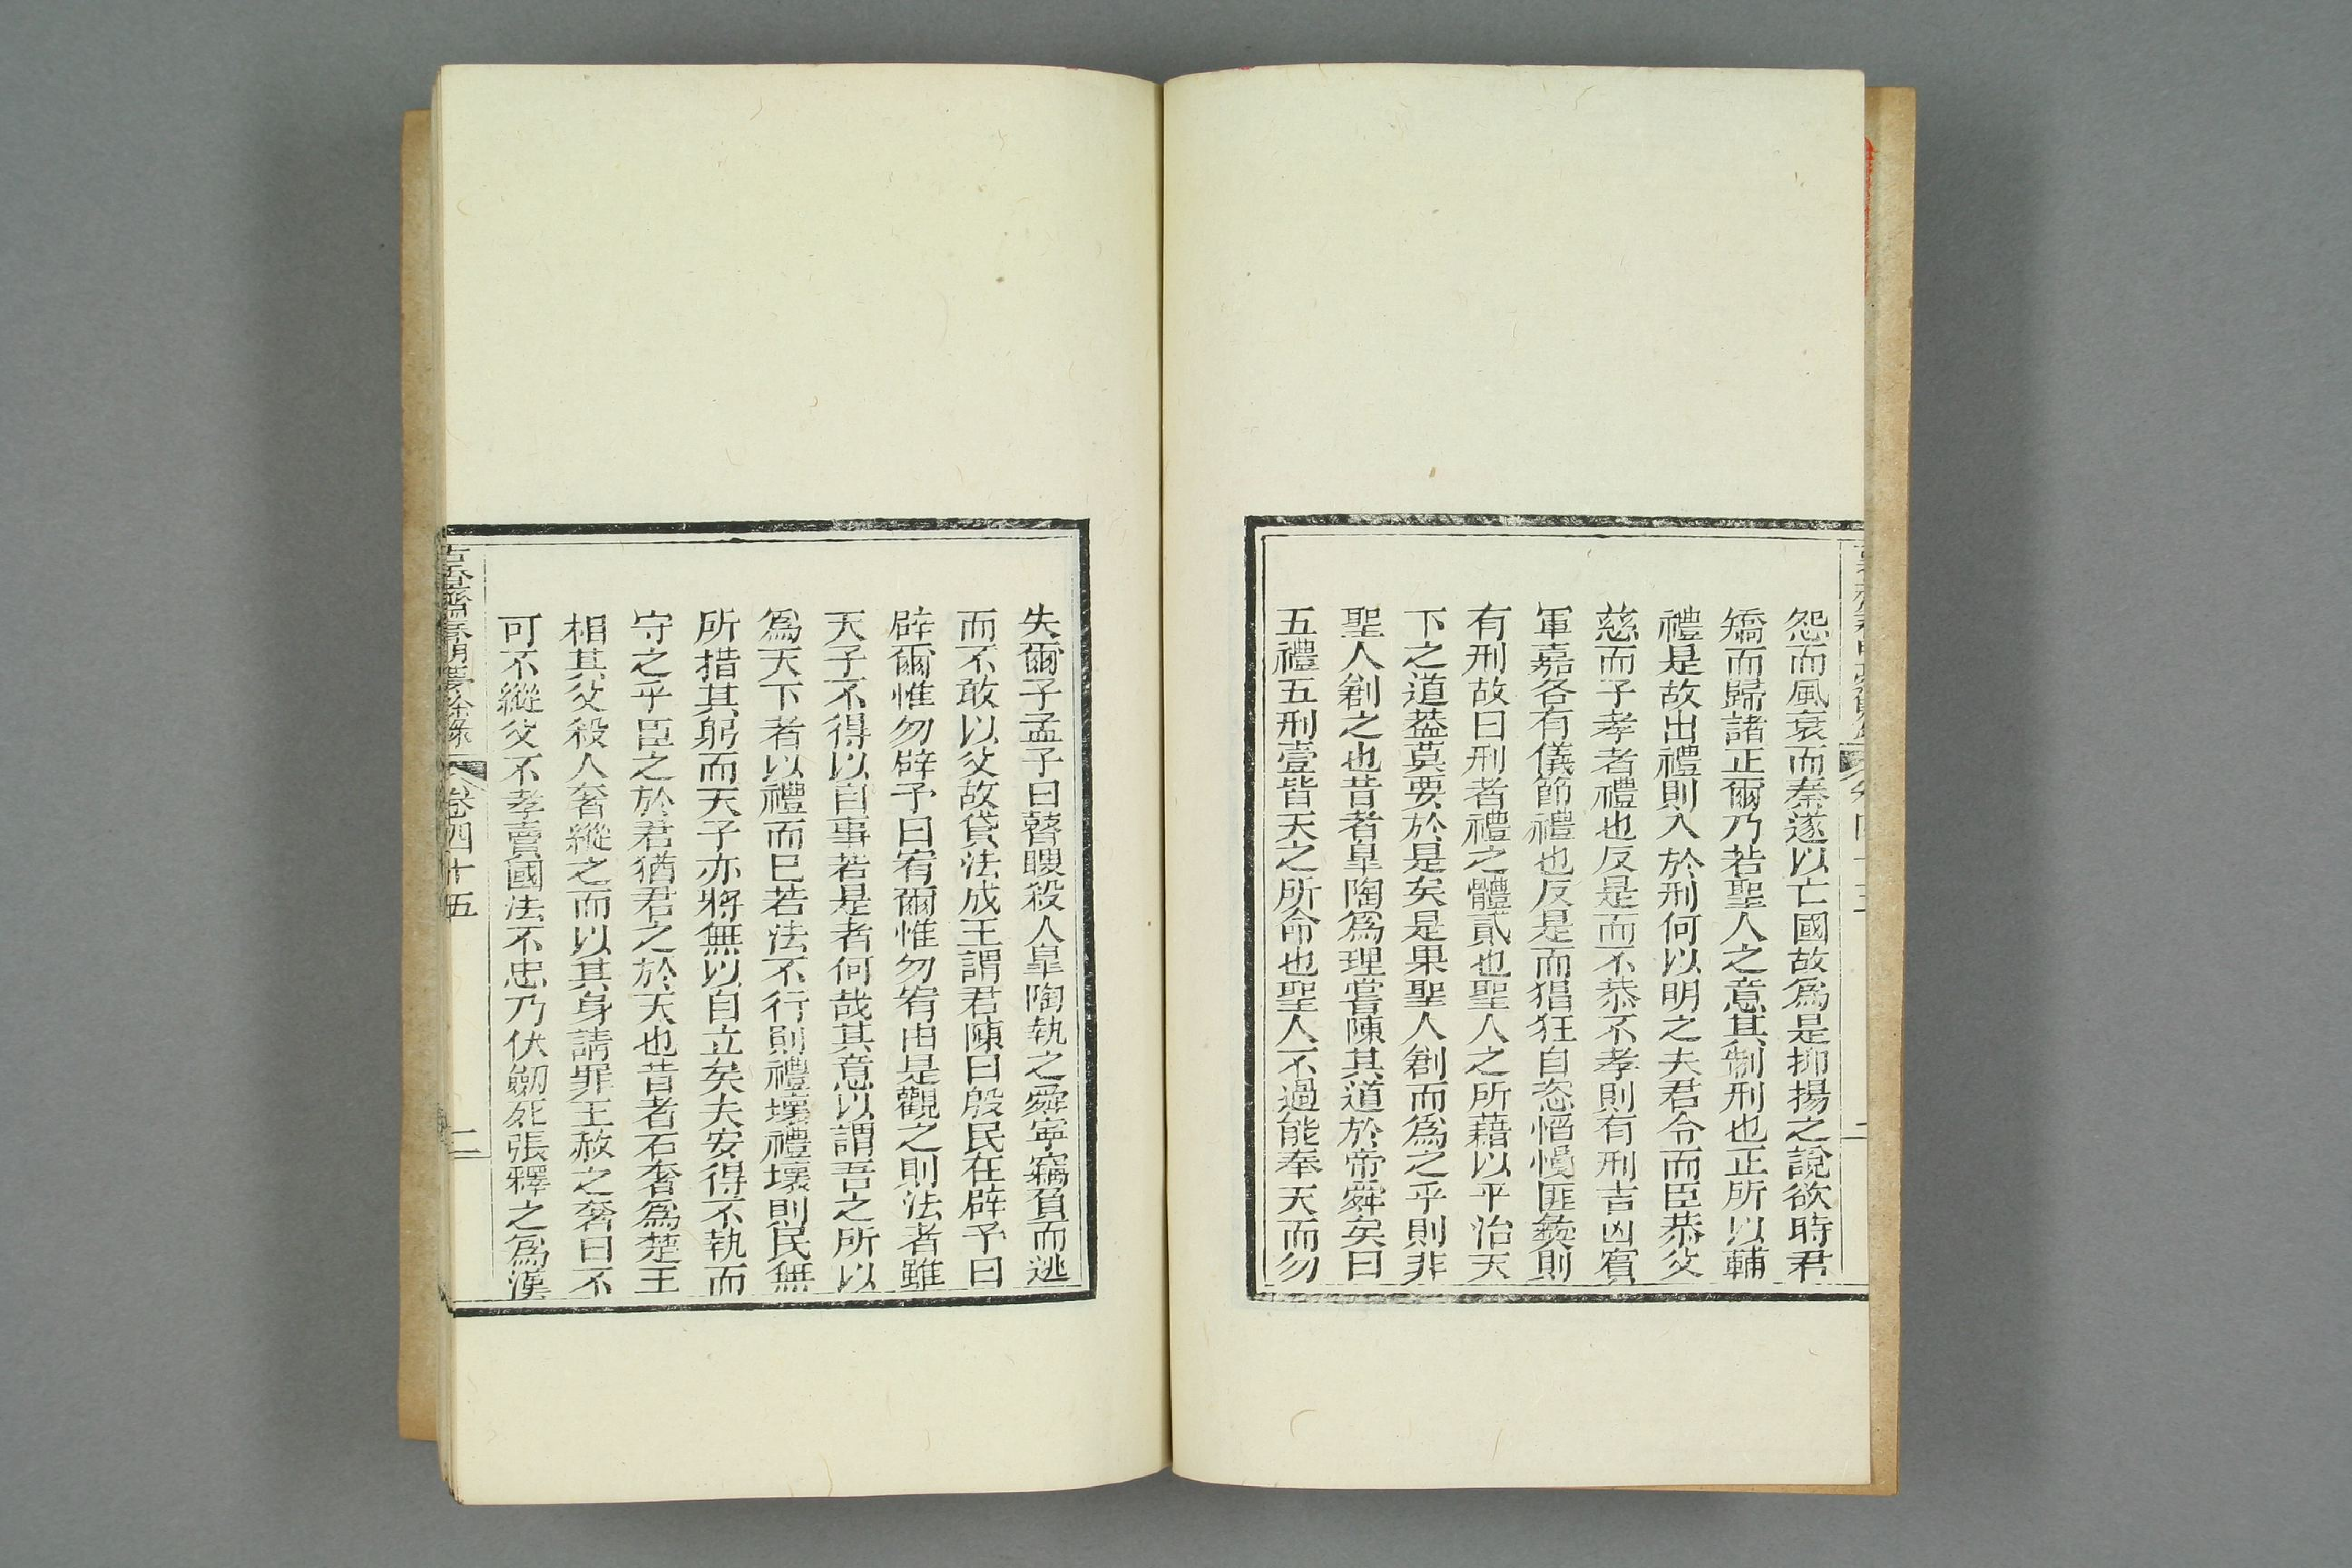 怨而風衰而秦遂以亡國故爲是抑揚之說欲時君
矯而歸諸正爾乃若聖人之意其制刑也正所以輔
禮是故出禮則入於刑何以明之夫君令而臣恭父
慈而子孝者禮也反是而不恭不孝則有刑吉凶賓
軍嘉各有儀節禮也反是而猖狂自恣慆慢匪彝則
有刑故曰刑者禮之體貳也聖人之所藉以平治天
下之道葢莫要於是矣是果聖人創而爲之乎則非
聖人創之也昔者臯陶爲理嘗陳其道於帝舜矣曰
五禮五刑壹皆天之所命也聖人不過能奉天而勿
失爾子孟子曰瞽瞍殺人臯陶執之舜寜竊負而逃
而不敢以父故貸法成王謂君陳曰殷民在辟予曰
辟爾惟勿辟予曰宥爾惟勿宥由是觀之則法者雖
天子不得以自事若是者何哉其意以謂吾之所以
爲天下者以禮而巳若法不行則禮壞禮壞則民無
所措其躬而天子亦將無以自立矣夫安得不執而
守之乎臣之於君猶君之於天也昔者石奢爲楚王
相其父殺人奢縱之而以其身請罪王赦之奢曰不
可不縱父不孝賣國法不忠乃伏劒死張釋之爲漢
古香齋春明夢餘錄 卷四十五 二